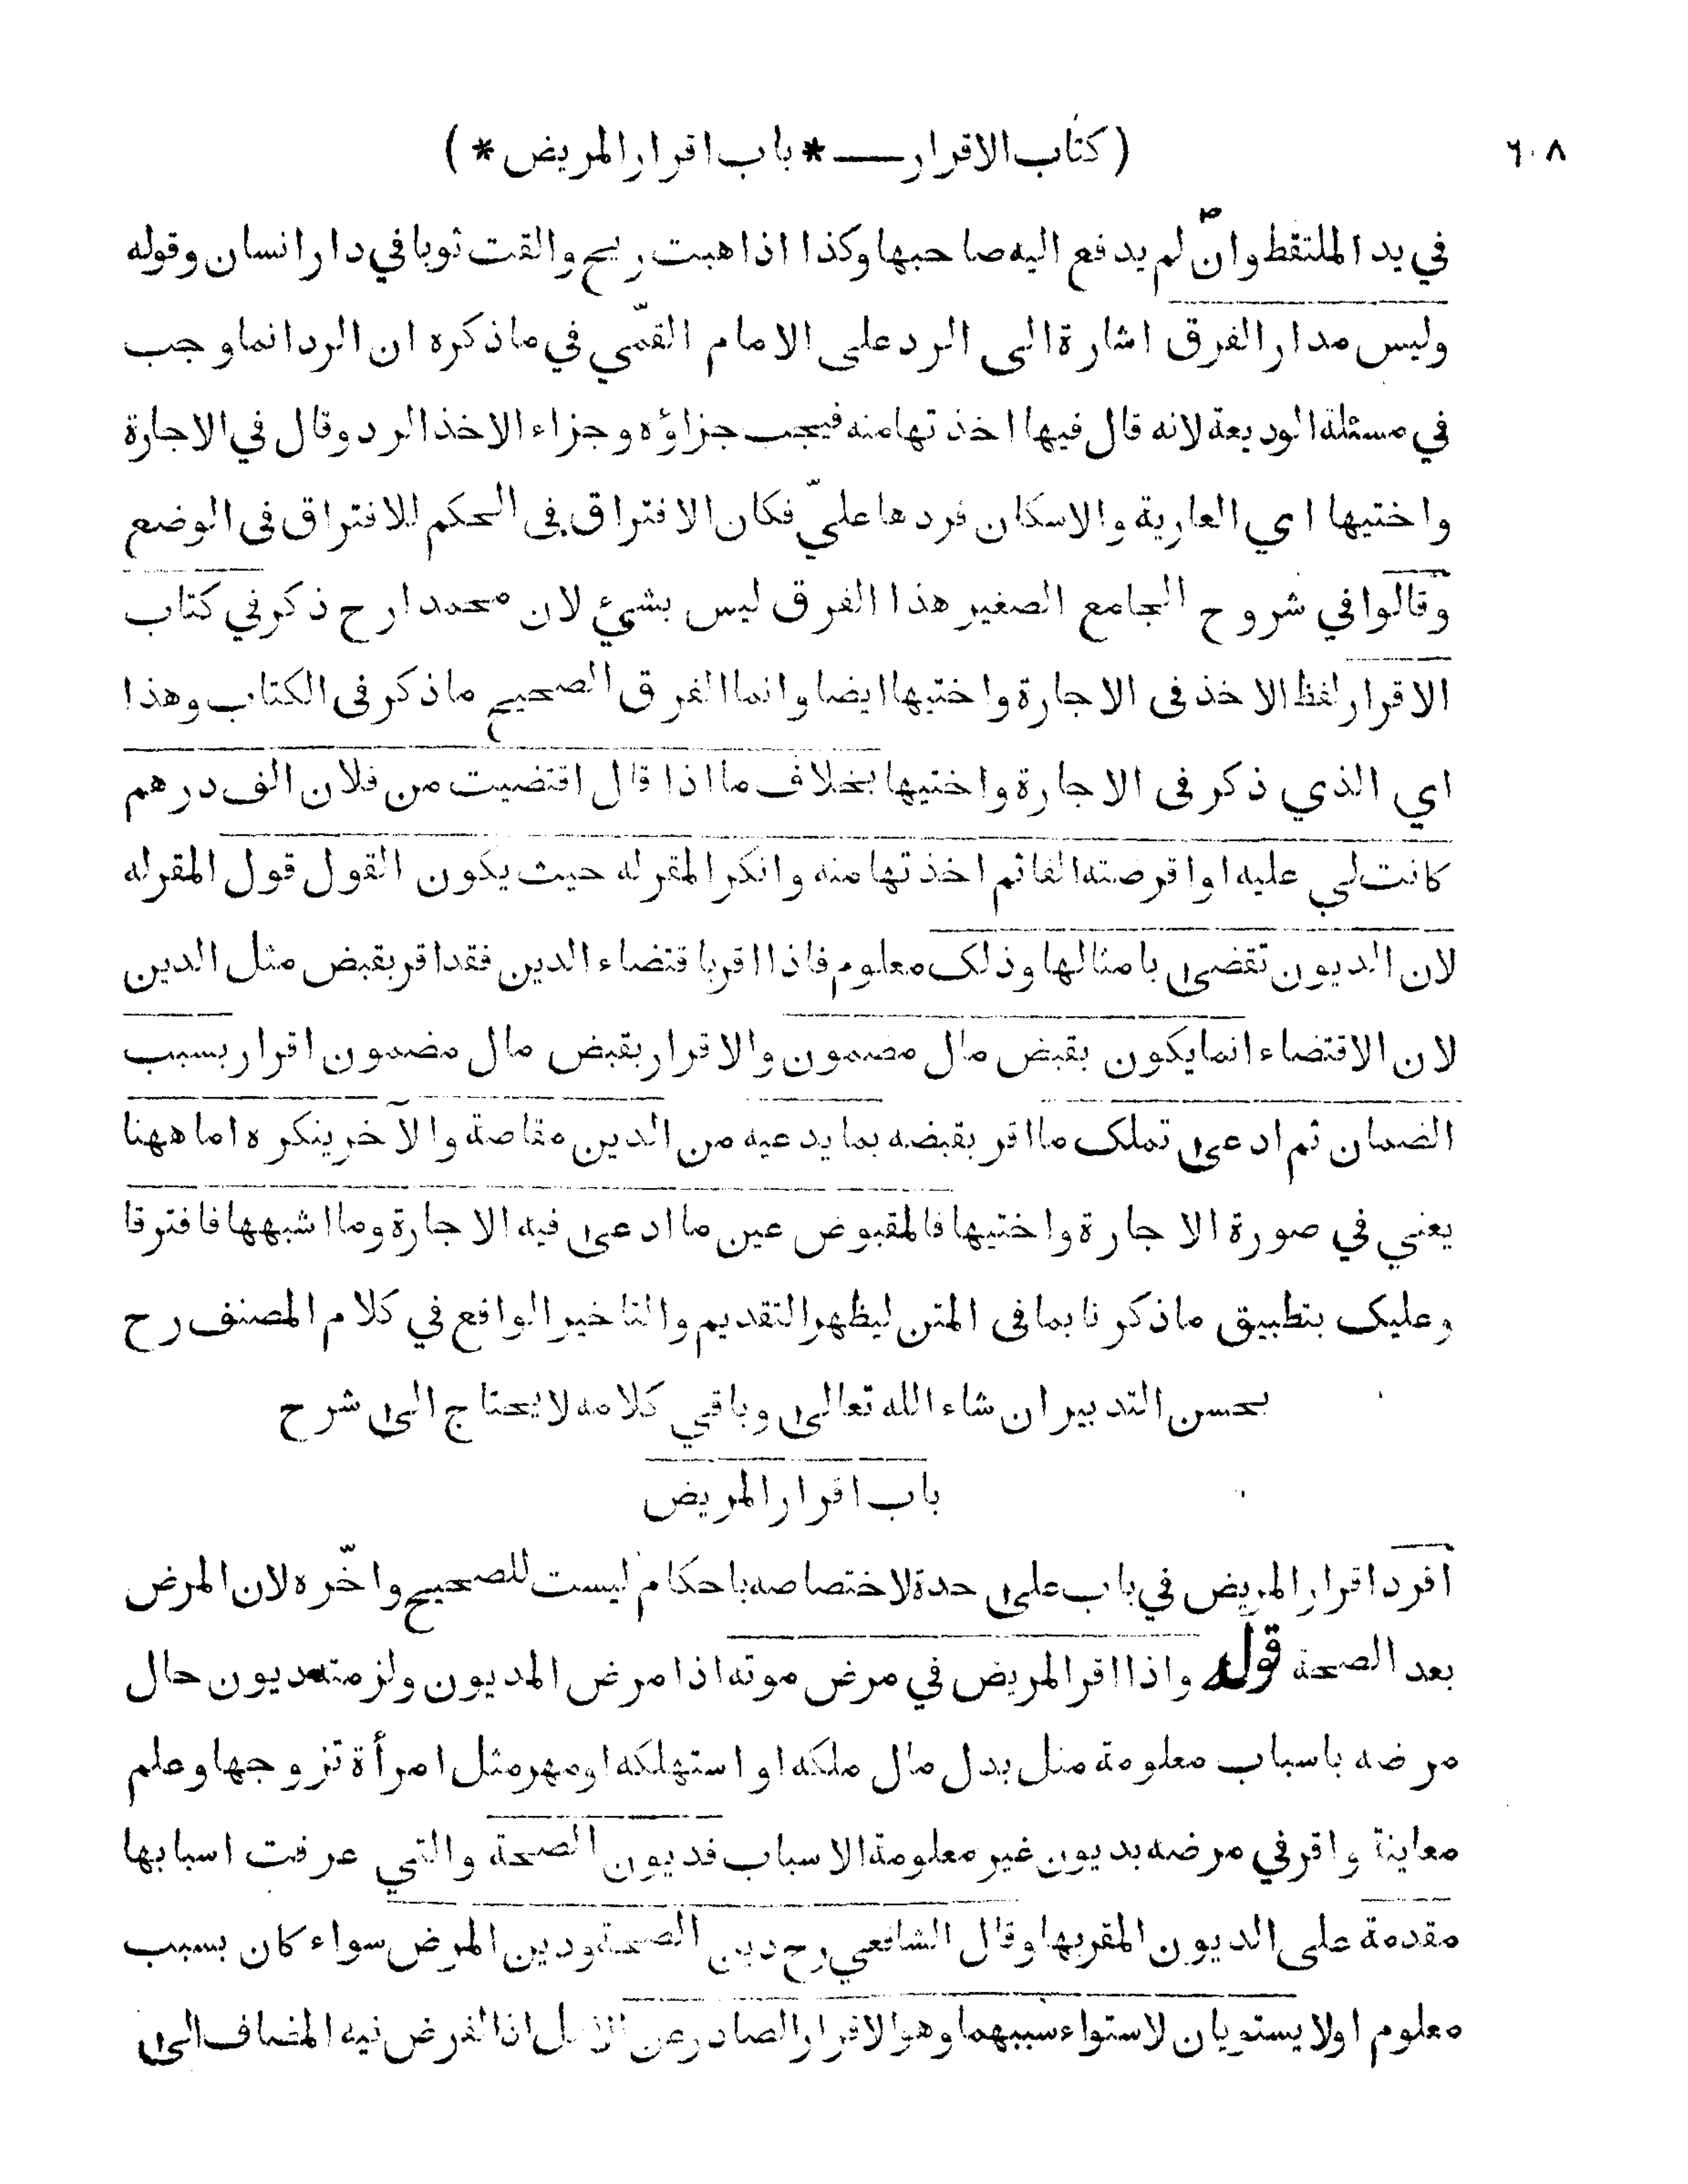 ٦٠٨
( كتاب الاقرار ــــ * باب اقرار المريض * )
في يد الملتقط وان لم يدفع اليه صاحبها وكذا اذا هبت ريح والقت ثوبا في دار انسان وقوله
وليس مدار الفرق اشارة الى الرد على الامام القمّي في ما ذكره ان الرد انما وجب
في مسئلة الوديعة لانه قال فيها اخذتها منه فيجب جزاؤه وجزاء الاخذ الرد وقال في الاجارة
واختيها اي العارية والاسكان فردها عليّ فكان الافتراق في الحكم للافتراق في الوضع
وقالوا في شروح الجامع الصغير هذا الفرق ليس بشيء لان محمدا رح ذكر في كتاب
الاقرار لفظ الاخذ في الاجارة واختيها ايضا وانما الفرق الصحيح ما ذكر في الكتاب وهذا
اي الذي ذكر في الاجارة واختيها بخلاف ما اذا قال اقتضيت من فلان الف درهم
كانت لي عليه او اقرضته الفا ثم اخذتها منه وانكر المقر له حيث يكون القول قول المقر له
لان الديون تقضى بامثالها وذلك معلوم فاذا اقر باقتضاء الدين فقد اقر بقبض مثل الدين
لان الاقتضاء انما يكون بقبض مال مضمون والاقرار بقبض مال مضمون اقرار بسبب
الضمان ثم ادعى تملك ما اقر بقبضه بما يدعيه من الدين مقاصة والآخر ينكره اما ههنا
يعني في صورة الاجارة واختيها فالمقبوض عين ما ادعى فيه الاجارة وما اشبهها فافترقا
وعليك بتطبيق ما ذكرنا بما في المتن ليظهر التقديم والتاخير الواقع في كلام المصنف رح
بحسن التدبير ان شاء الله تعالى وباقي كلامه لا يحتاج الى شرح
باب اقرار المريض
افرد اقرار المريض في باب على حدة لاختصاصه باحكام ليست للصحيح واخّره لان المرض
بعد الصحة قوله واذا اقر المريض في مرض موته اذا مرض المديون ولزمته ديون حال
مرضه باسباب معلومة مثل بدل مال ملكه او استهلكه او مهر مثل امرأة تزوجها وعلم
معاينة واقر في مرضه بديون غير معلومة الاسباب فديون الصحة والتي عرفت اسبابها
مقدمة على الديون المقر بها وقال الشافعي رح دين الصحة ودين المرض سواء كان بسبب
معلوم او لا يستويان لاستواء سببهما وهو الاقرار الصادر عن اذ الفرض فيه المضاف الى